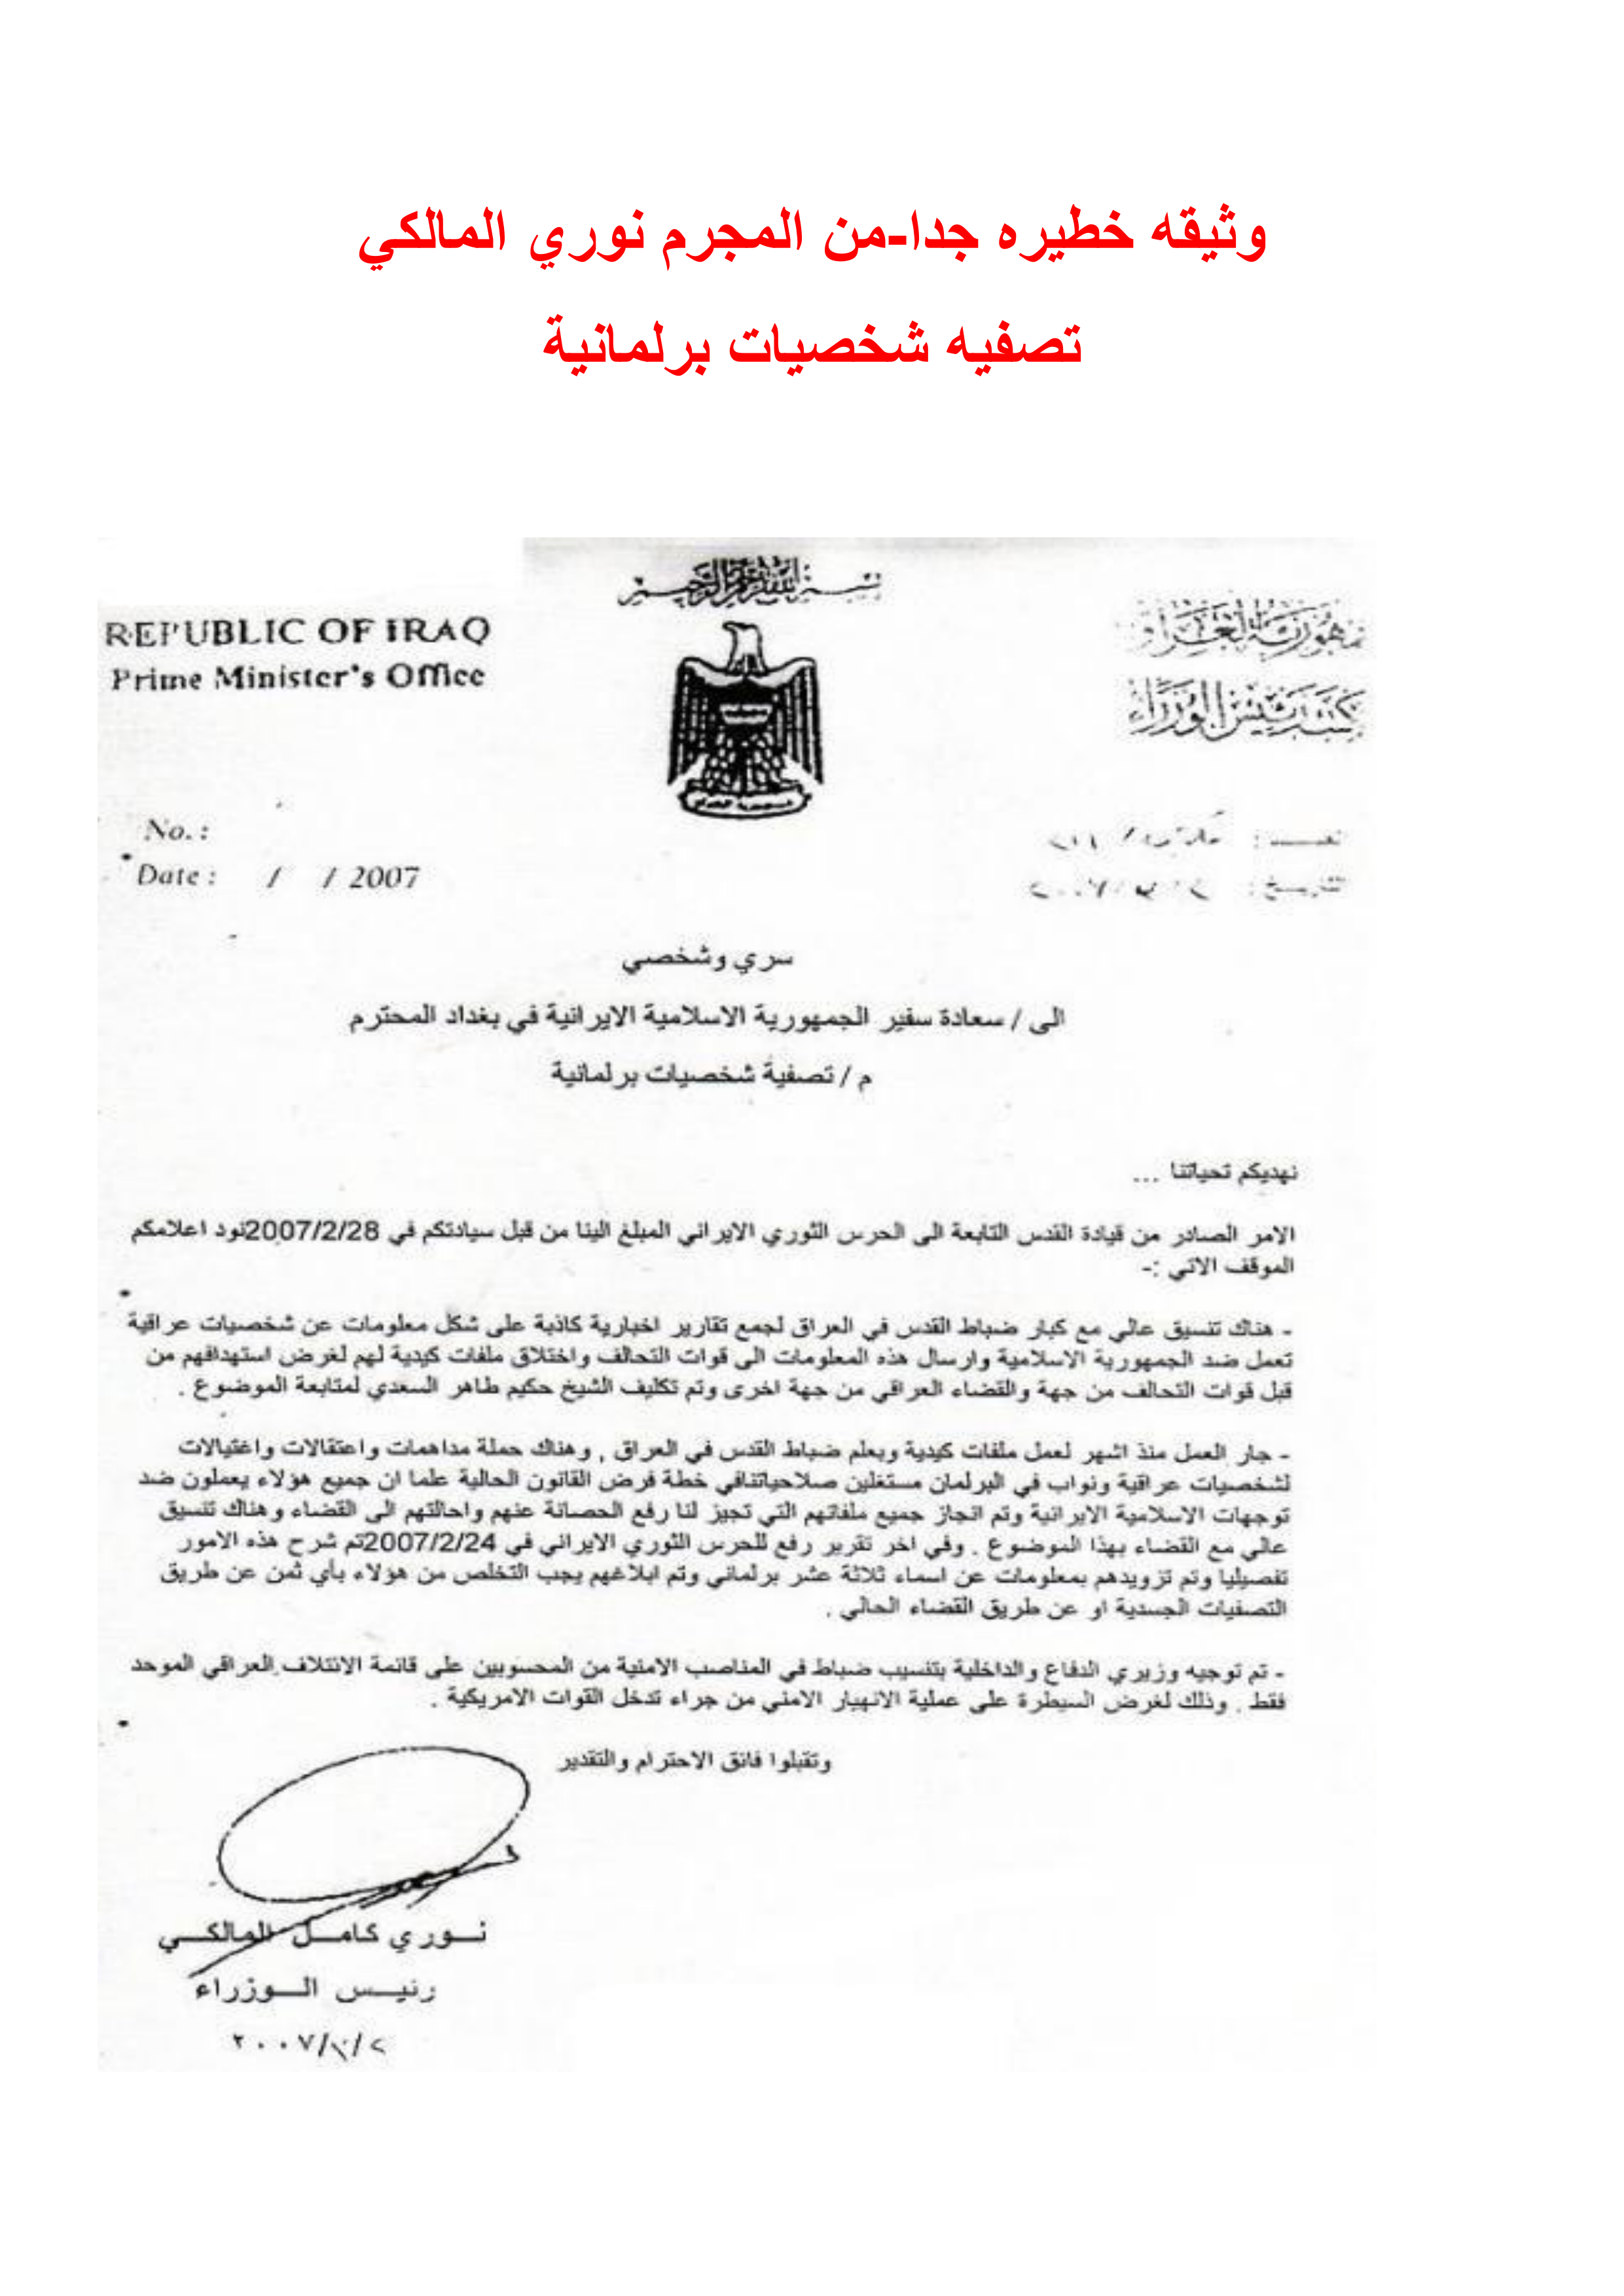 وثيقه خطيره جدا-من المجرم نوري المالكي
تصفيه شخصيات برلمانية
بسم الله الرحمن الرحيم
REPUBLIC OF IRAQ
Prime Minister's Office
جمهورية العراق
مكتب رئيس الوزراء
No. :
Date : / / 2007
سري وشخصي
الى / سعادة سفير الجمهورية الاسلامية الايرانية في بغداد المحترم
م / تصفية شخصيات برلمانية
نهديكم تحياتنا ...
الامر الصادر من قيادة القدس التابعة الى الحرس الثوري الايراني المبلغ الينا من قبل سيادتكم في 2007/2/28نود اعلامكم
الموقف الاتي :-
- هناك تنسيق عالي مع كبار ضباط القدس في العراق لجمع تقارير اخبارية كاذبة على شكل معلومات عن شخصيات عراقية
تعمل ضد الجمهورية الاسلامية وارسال هذه المعلومات الى قوات التحالف واختلاق ملفات كيدية لهم لغرض استهدافهم من
قبل قوات التحالف من جهة والقضاء العراقي من جهة اخرى وتم تكليف الشيخ حكيم طاهر السعدي لمتابعة الموضوع .
- جار العمل منذ اشهر لعمل ملفات كيدية وبعلم ضباط القدس في العراق , وهناك حملة مداهمات واعتقالات واغتيالات
لشخصيات عراقية ونواب في البرلمان مستغلين صلاحياتنافي خطة فرض القانون الحالية علما ان جميع هؤلاء يعملون ضد
توجهات الاسلامية الايرانية وتم انجاز جميع ملفاتهم التي تجيز لنا رفع الحصانة عنهم واحالتهم الى القضاء وهناك تنسيق
عالي مع القضاء بهذا الموضوع . وفي اخر تقرير رفع للحرس الثوري الايراني في 2007/2/24تم شرح هذه الامور
تفصيليا وتم تزويدهم بمعلومات عن اسماء ثلاثة عشر برلماني وتم ابلاغهم يجب التخلص من هؤلاء بأي ثمن عن طريق
التصفيات الجسدية او عن طريق القضاء الحالي .
- تم توجيه وزيري الدفاع والداخلية بتنسيب ضباط في المناصب الامنية من المحسوبين على قائمة الائتلاف العراقي الموحد
فقط . وذلك لغرض السيطرة على عملية الانهيار الامني من جراء تدخل القوات الامريكية .
وتقبلوا فائق الاحترام والتقدير
نوري كامل المالكي
رئيس الوزراء